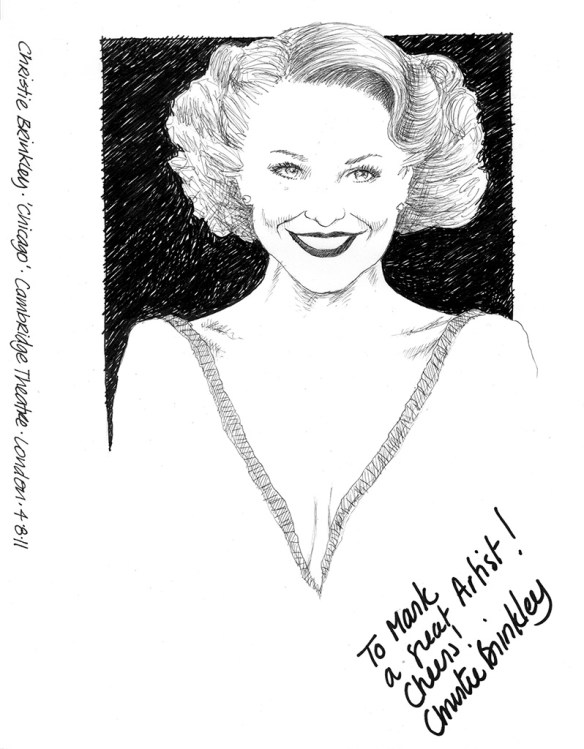 Christie Brinkley · 'Chicago' · Cambridge Theatre · London · 4·8·11
To Mark
a great Artist!
Cheers!
Christie Brinkley